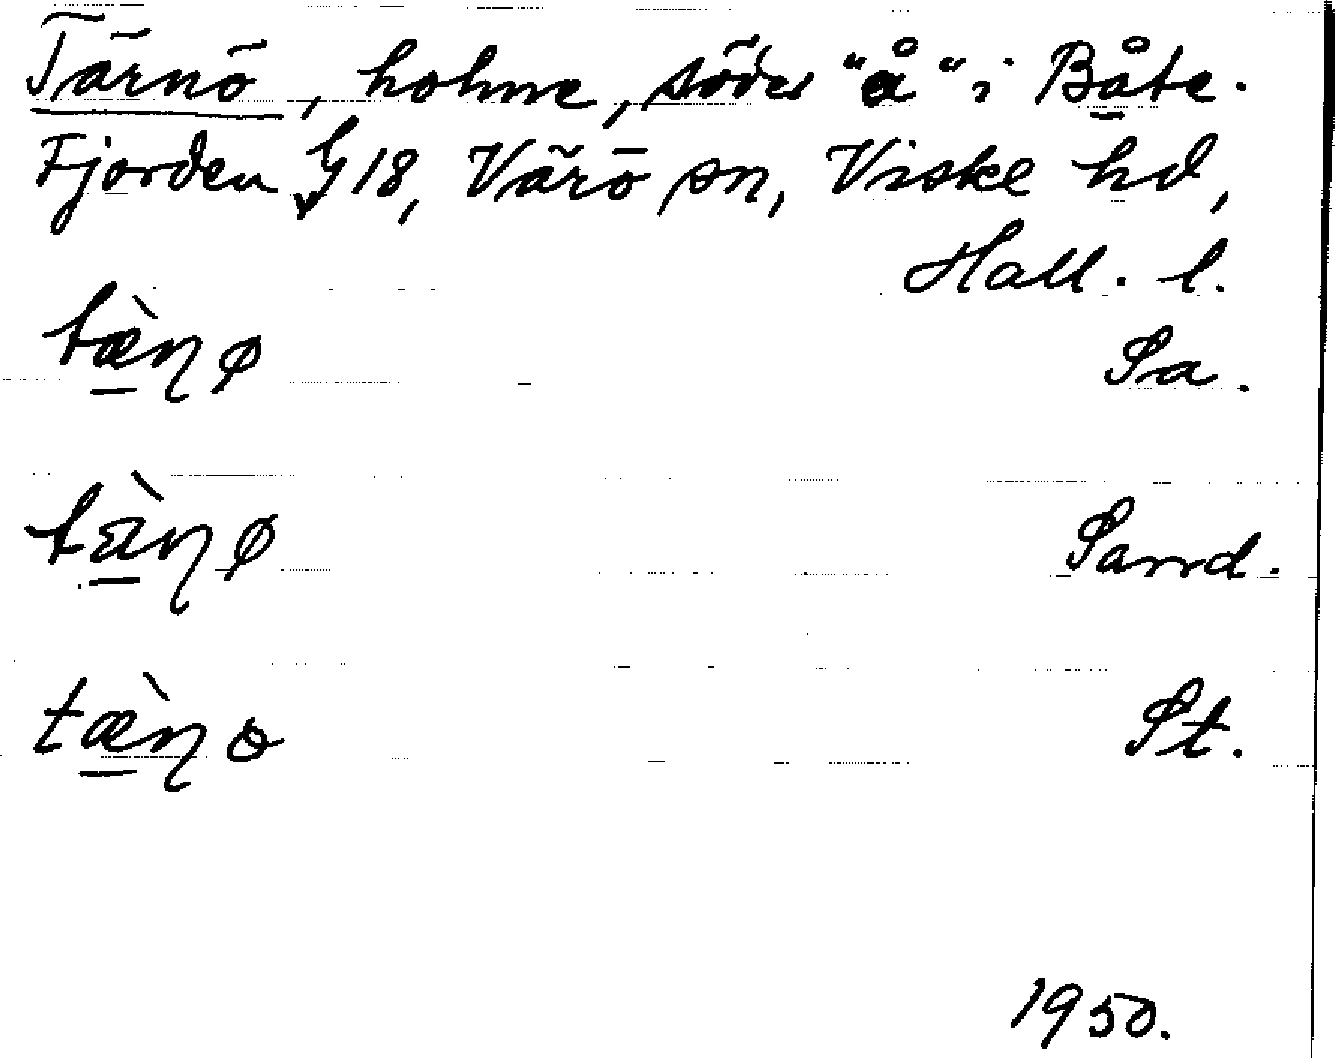 Tärnö, holme, söder "å" i Båte-
Fjorden G 18, Värö sn, Viske hd,
Hall. l.
tæ̠̀ɳø Sa.
tä̠̀ɳø Sand.
tæ̠̀ɳɵ St.
1950.